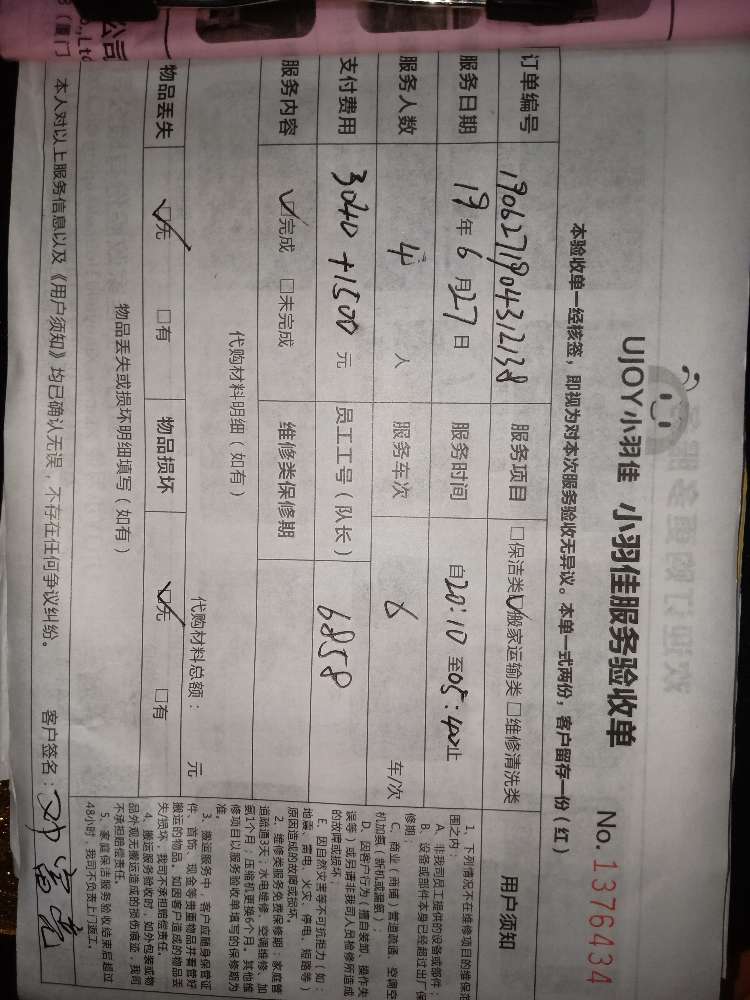 公司
.,Ltd
(厦门
UJOY小羽佳 小羽佳服务验收单 No. 1376434
本验收单一经核签，即视为对本次服务验收无异议。本单一式两份，客户留存一份（红）
订单编号 190627190431 2138 服务项目 □保洁类 ☑搬家运输类 □维修清洗类
服务日期 19 年 6 月 27 日 服务时间 自20:10 至05:40止
服务人数 4 人 服务车次 6 车/次
支付费用 3040+1500 元 员工工号（队长） 6858
服务内容 ☑完成 □未完成 维修类保修期
代购材料明细（如有）
代购材料总额： 元
物品丢失 ☑无 □有 物品损坏 ☑无 □有
物品丢失或损坏明细填写（如有）
用户须知
1、下列情况不在维修项目的维保范
围之内：
A、非我司员工提供的设备或部件；
B、设备或部件本身已经超过出厂保
修期；
C、商业（商铺）管道疏通、空调空
机加氟（新机或漏氟）；
D、因客户行为（擅自装卸、操作失
误等）或另请非我司人员检修所造成
的故障或损坏
E、因自然灾害等不可抗拒力（如：
地震、雷电、火灾、停电、短路等）
原因造成的故障或损坏。
2、维修类服务免费保修期：家庭管
道疏通3天；水电维修、空调维修、加
氟1个月；压缩机更换6个月。其他维
修项目以服务验收单填写的保修期为
准。
3、搬运服务中，客户应随身保管证
件、首饰、现金等贵重物品并看管好
搬运的物品，如因客户造成的物品丢
失/损坏，我司不承担赔偿责任。
4、搬运服务验收时，如外包装或物
品外观无搬运造成的损伤痕迹，我司
不承担赔偿责任。
5、家庭保洁服务验收结束后超过
48小时，我司不负责上门返工。
本人对以上服务信息以及《用户须知》均已确认无误，不存在任何争议纠纷。 客户签名：